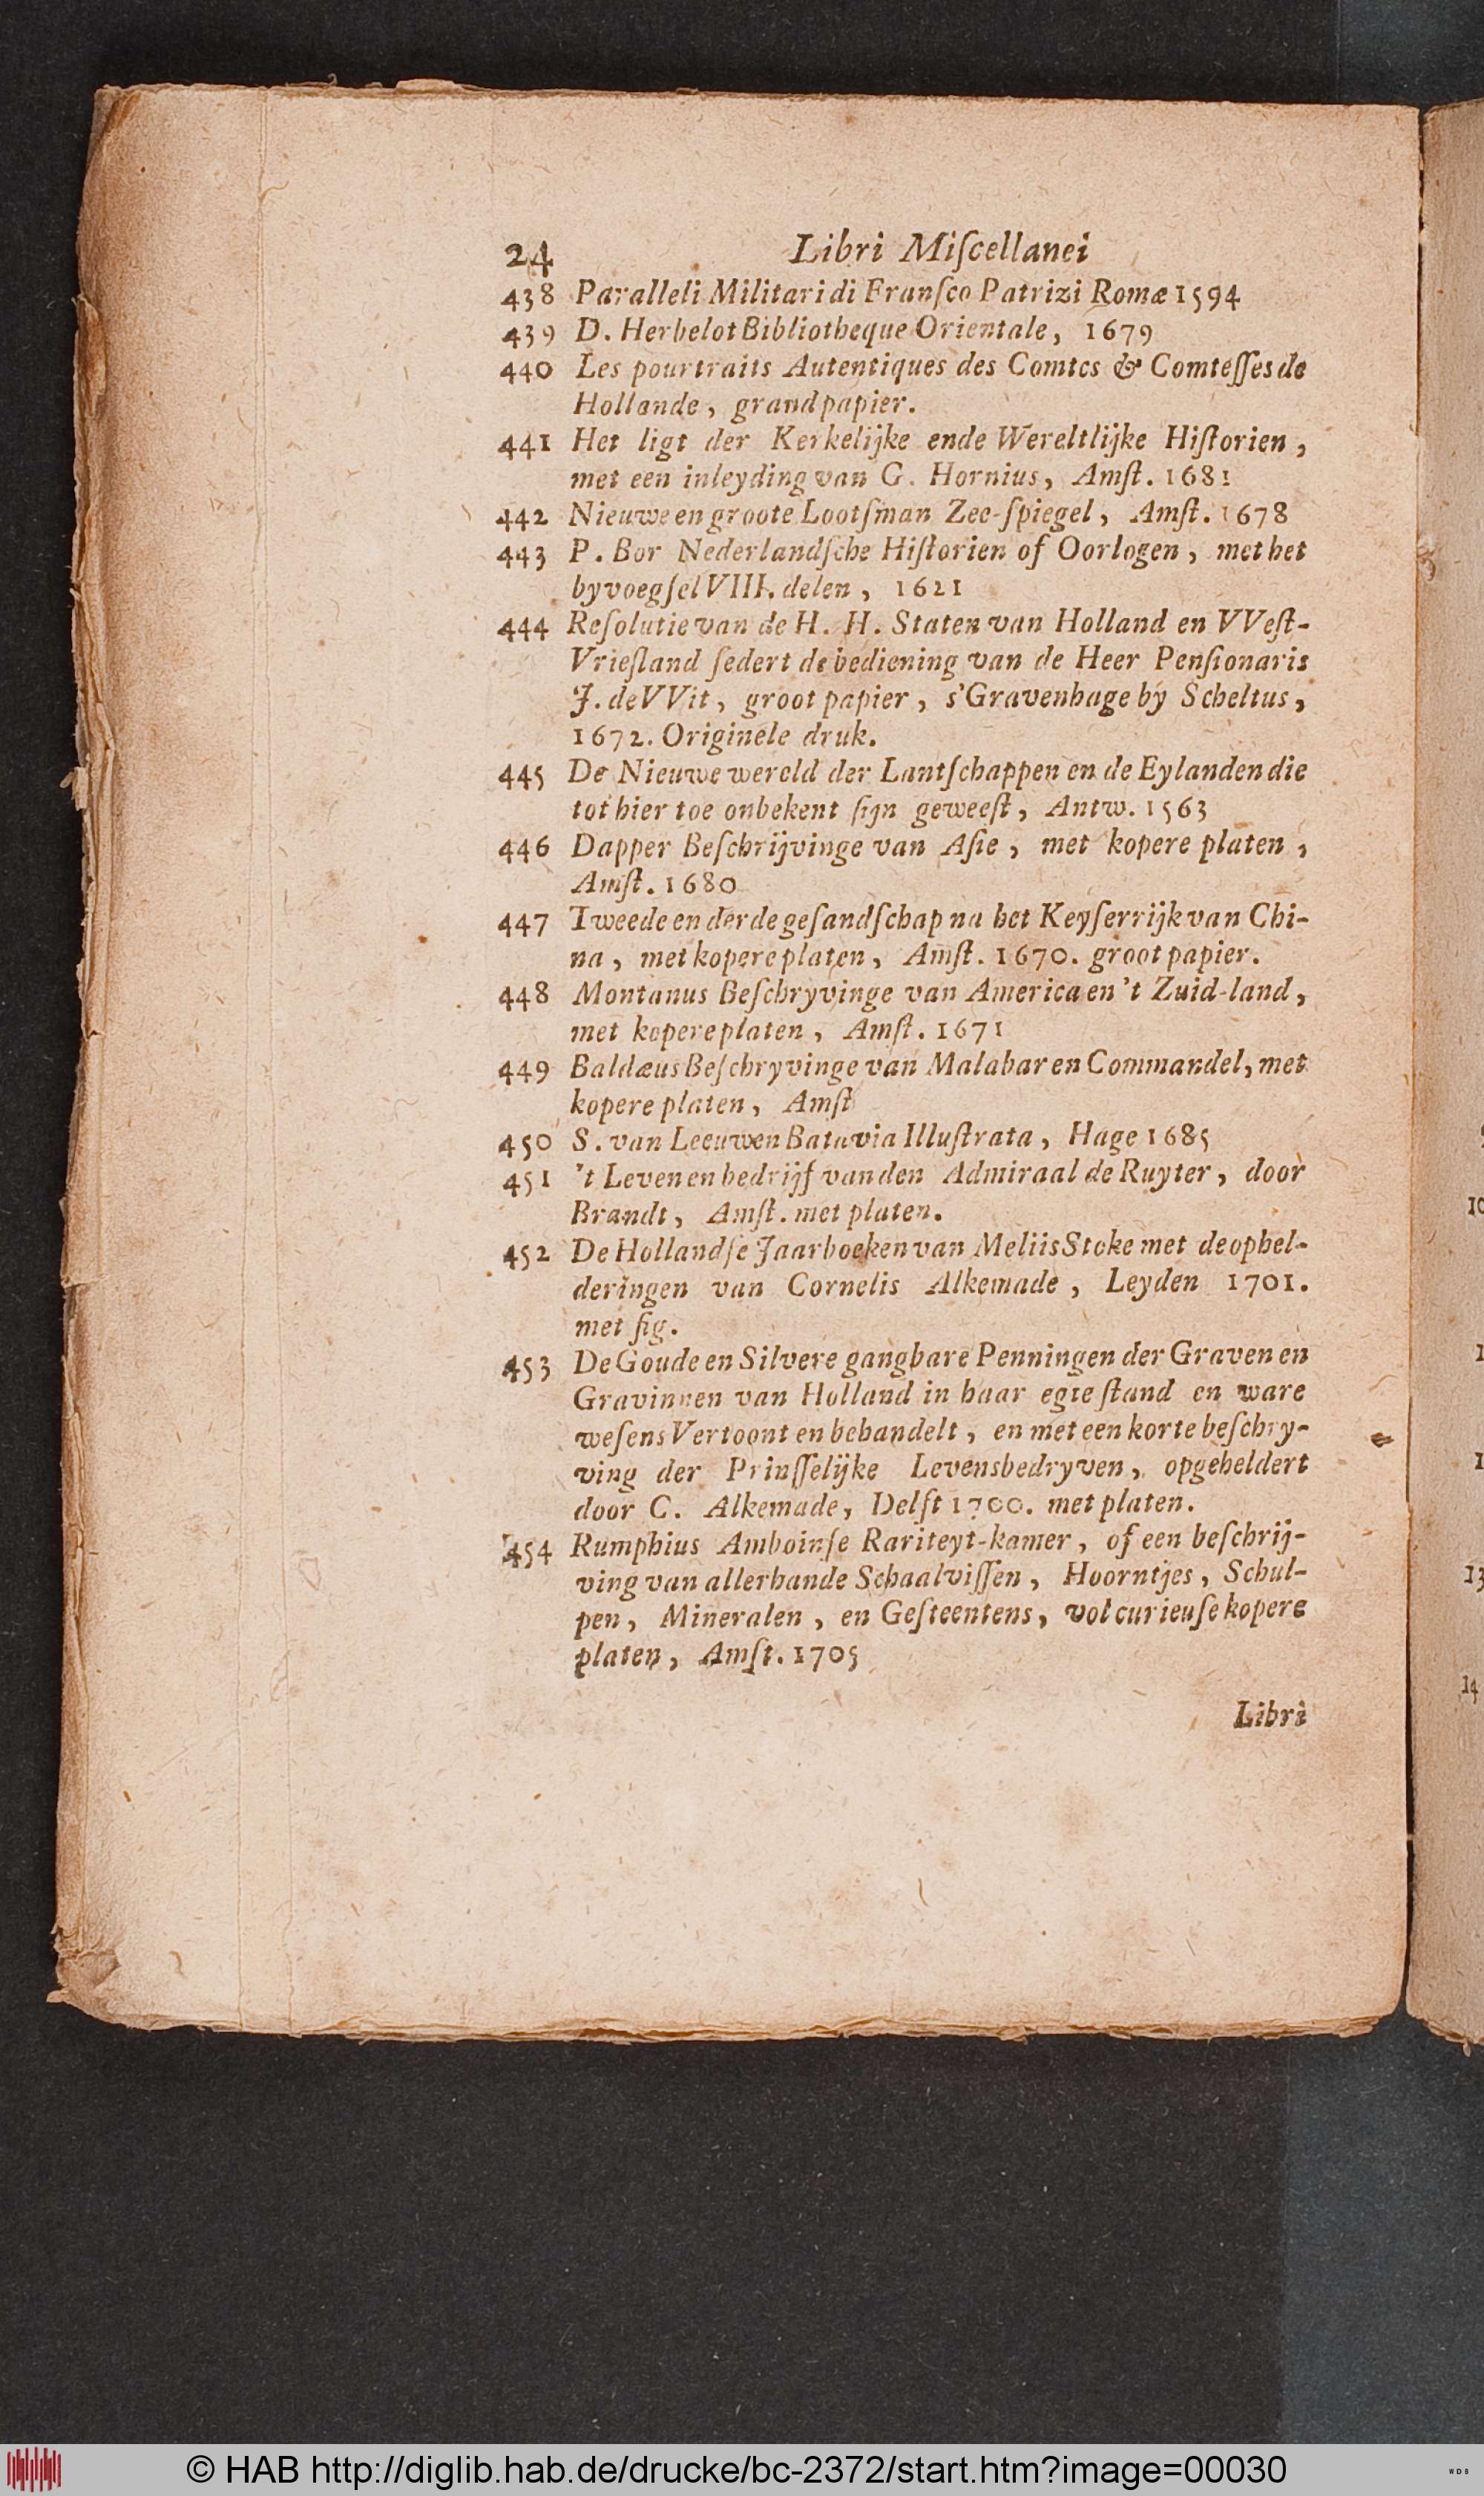 24 Libri Miſcellanei
438 Paralleli Militari di Franſco Patrizi Romæ 1594
439 D. Herbelot Bibliotheque Orientale, 1679
440 Les pourtraits Autentiques des Comtes & Comteſſes de
Hollande, grand papier.
441 Het ligt der Kerkelijke ende Wereltlijke Hiſtorien,
met een inleyding van G. Hornius, Amſt. 1681
442 Nieuwe en groote Lootſman Zee-ſpiegel, Amſt. 1678
443 P. Bor Nederlandſche Hiſtorien of Oorlogen, met het
byvoegſel VIII. delen, 1621
444 Reſolutie van de H. H. Staten van Holland en VVeſt-
Vrieſland ſedert de bediening van de Heer Penſionaris
J. de VVit, groot papier, s'Gravenhage by Scheltus,
1672. Originele druk.
445 De Nieuwe wereld der Lantſchappen en de Eylanden die
tot hier toe onbekent ſijn geweeſt, Antw. 1563
446 Dapper Beſchrijvinge van Aſie, met kopere platen,
Amſt. 1680
447 Tweede en derde geſandſchap na het Keyſerrijk van Chi-
na, met kopere platen, Amſt. 1670. groot papier.
448 Montanus Beſchryvinge van America en 't Zuid-land,
met kopere platen, Amſt. 1671
449 Baldæus Beſchryvinge van Malabar en Commandel, met
kopere platen, Amſt
450 S. van Leeuwen Batavia Illuſtrata, Hage 1685
451 't Leven en bedrijf van den Admiraal de Ruyter, door
Brandt, Amſt. met platen.
452 De Hollandſe Jaarboeken van Meliis Stoke met de ophel-
deringen van Cornelis Alkemade, Leyden 1701.
met fig.
453 De Goude en Silvere gangbare Penningen der Graven en
Gravinnen van Holland in haar egte ſtand en ware
weſens Vertoont en behandelt, en met een korte beſchry-
ving der Prinſſelijke Levensbedryven, opgeheldert
door C. Alkemade, Delft 1700. met platen.
454 Rumphius Amboinſe Rariteyt-kamer, of een beſchrij-
ving van allerhande Schaalviſſen, Hoorntjes, Schul-
pen, Mineralen, en Geſteentens, vol curieuſe kopere
platen, Amſt. 1705
Libri
© HAB http://diglib.hab.de/drucke/bc-2372/start.htm?image=00030